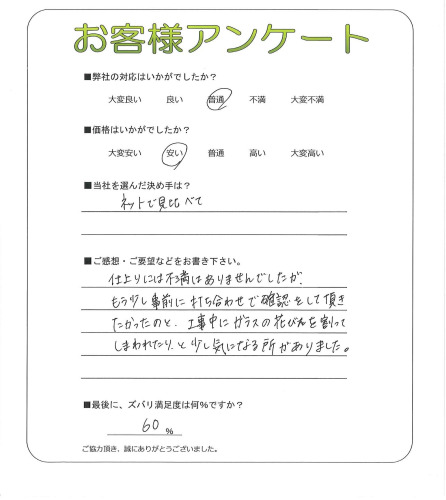 お客様アンケート
■弊社の対応はいかがでしたか？
大変良い 良い 普通 不満 大変不満
■価格はいかがでしたか？
大変安い 安い 普通 高い 大変高い
■当社を選んだ決め手は？
ネットで見比べて
■ご感想・ご要望などをお書き下さい。
仕上りには不満はありませんでしたが、
もう少し事前に打ち合わせで確認をして頂き
たかったのと、工事中にガラスの花びんを割って
しまわれたり、と少し気になる所がありました。
■最後に、ズバリ満足度は何％ですか？
60 ％
ご協力頂き、誠にありがとうございました。